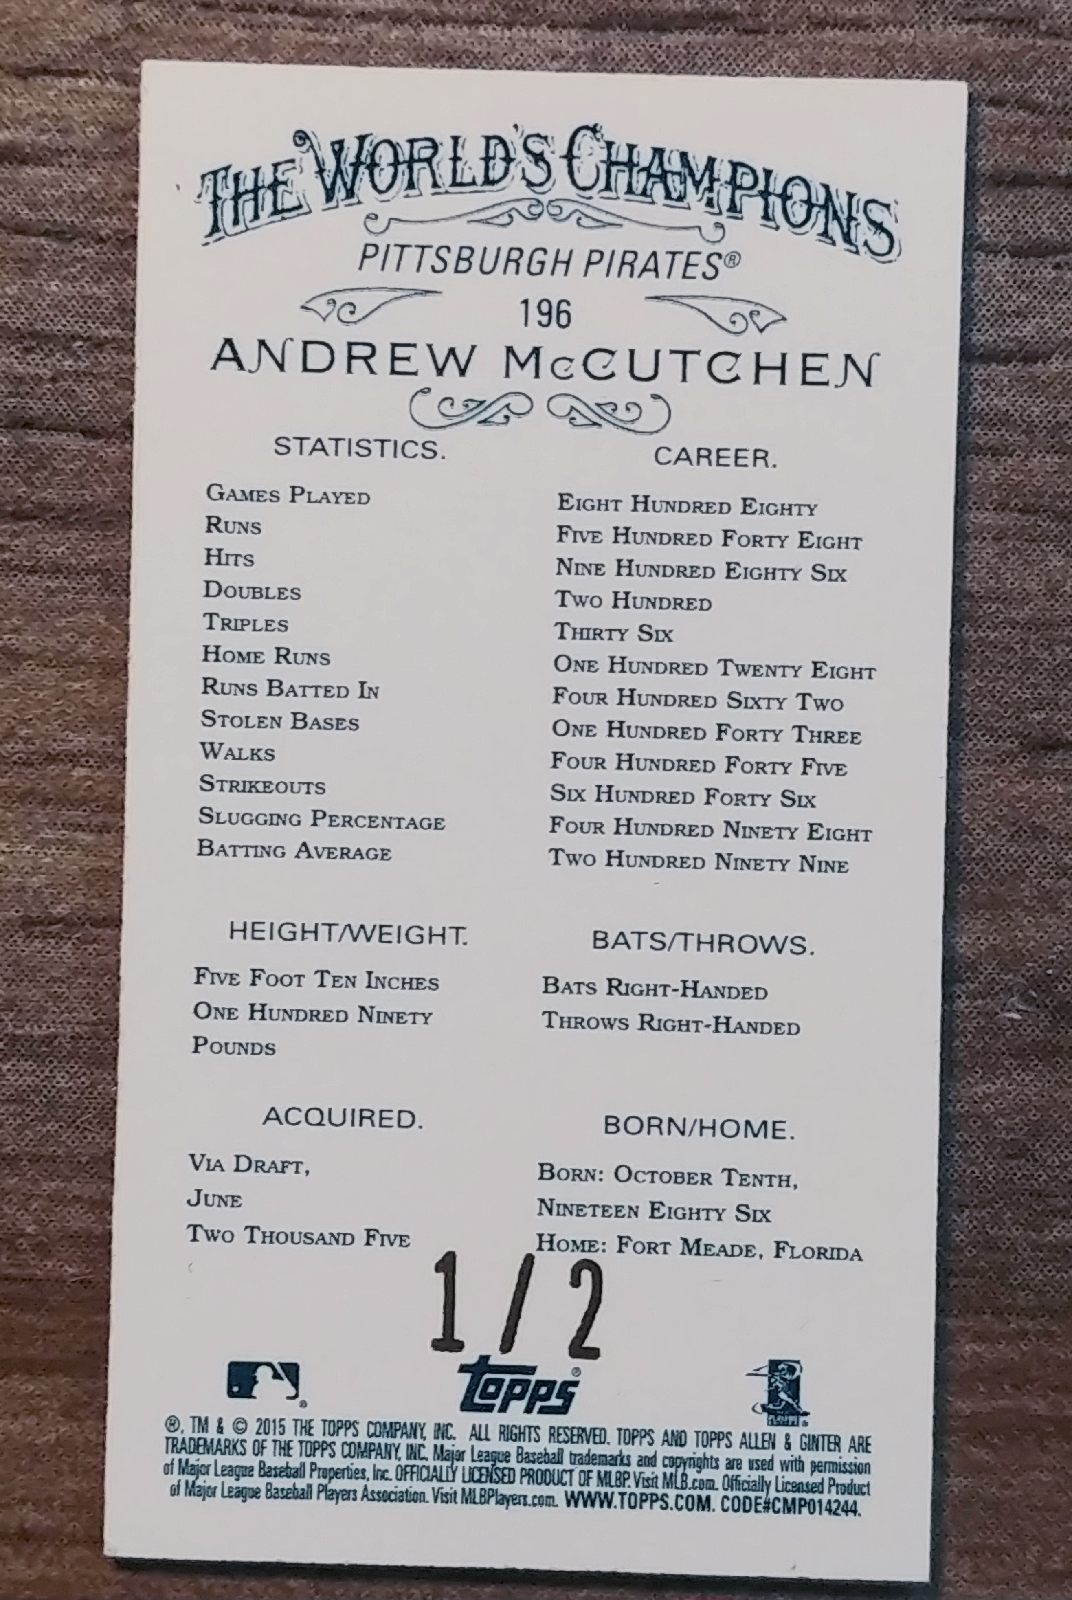 THE WORLD'S CHAMPIONS
PITTSBURGH PIRATES®
196
ANDREW McCUTCHEN
STATISTICS. CAREER.
GAMES PLAYED EIGHT HUNDRED EIGHTY
RUNS FIVE HUNDRED FORTY EIGHT
HITS NINE HUNDRED EIGHTY SIX
DOUBLES TWO HUNDRED
TRIPLES THIRTY SIX
HOME RUNS ONE HUNDRED TWENTY EIGHT
RUNS BATTED IN FOUR HUNDRED SIXTY TWO
STOLEN BASES ONE HUNDRED FORTY THREE
WALKS FOUR HUNDRED FORTY FIVE
STRIKEOUTS SIX HUNDRED FORTY SIX
SLUGGING PERCENTAGE FOUR HUNDRED NINETY EIGHT
BATTING AVERAGE TWO HUNDRED NINETY NINE
HEIGHT/WEIGHT.
FIVE FOOT TEN INCHES
ONE HUNDRED NINETY
POUNDS
BATS/THROWS.
BATS RIGHT-HANDED
THROWS RIGHT-HANDED
ACQUIRED.
VIA DRAFT,
JUNE
TWO THOUSAND FIVE
BORN/HOME.
BORN: OCTOBER TENTH,
NINETEEN EIGHTY SIX
HOME: FORT MEADE, FLORIDA
1/2
topps®
®, TM & © 2015 THE TOPPS COMPANY, INC. ALL RIGHTS RESERVED. TOPPS AND TOPPS ALLEN & GINTER ARE
TRADEMARKS OF THE TOPPS COMPANY, INC. Major League Baseball trademarks and copyrights are used with permission
of Major League Baseball Properties, Inc. OFFICIALLY LICENSED PRODUCT OF MLBP. Visit MLB.com. Officially Licensed Product
of Major League Baseball Players Association. Visit MLBPlayers.com. WWW.TOPPS.COM. CODE#CMP014244.